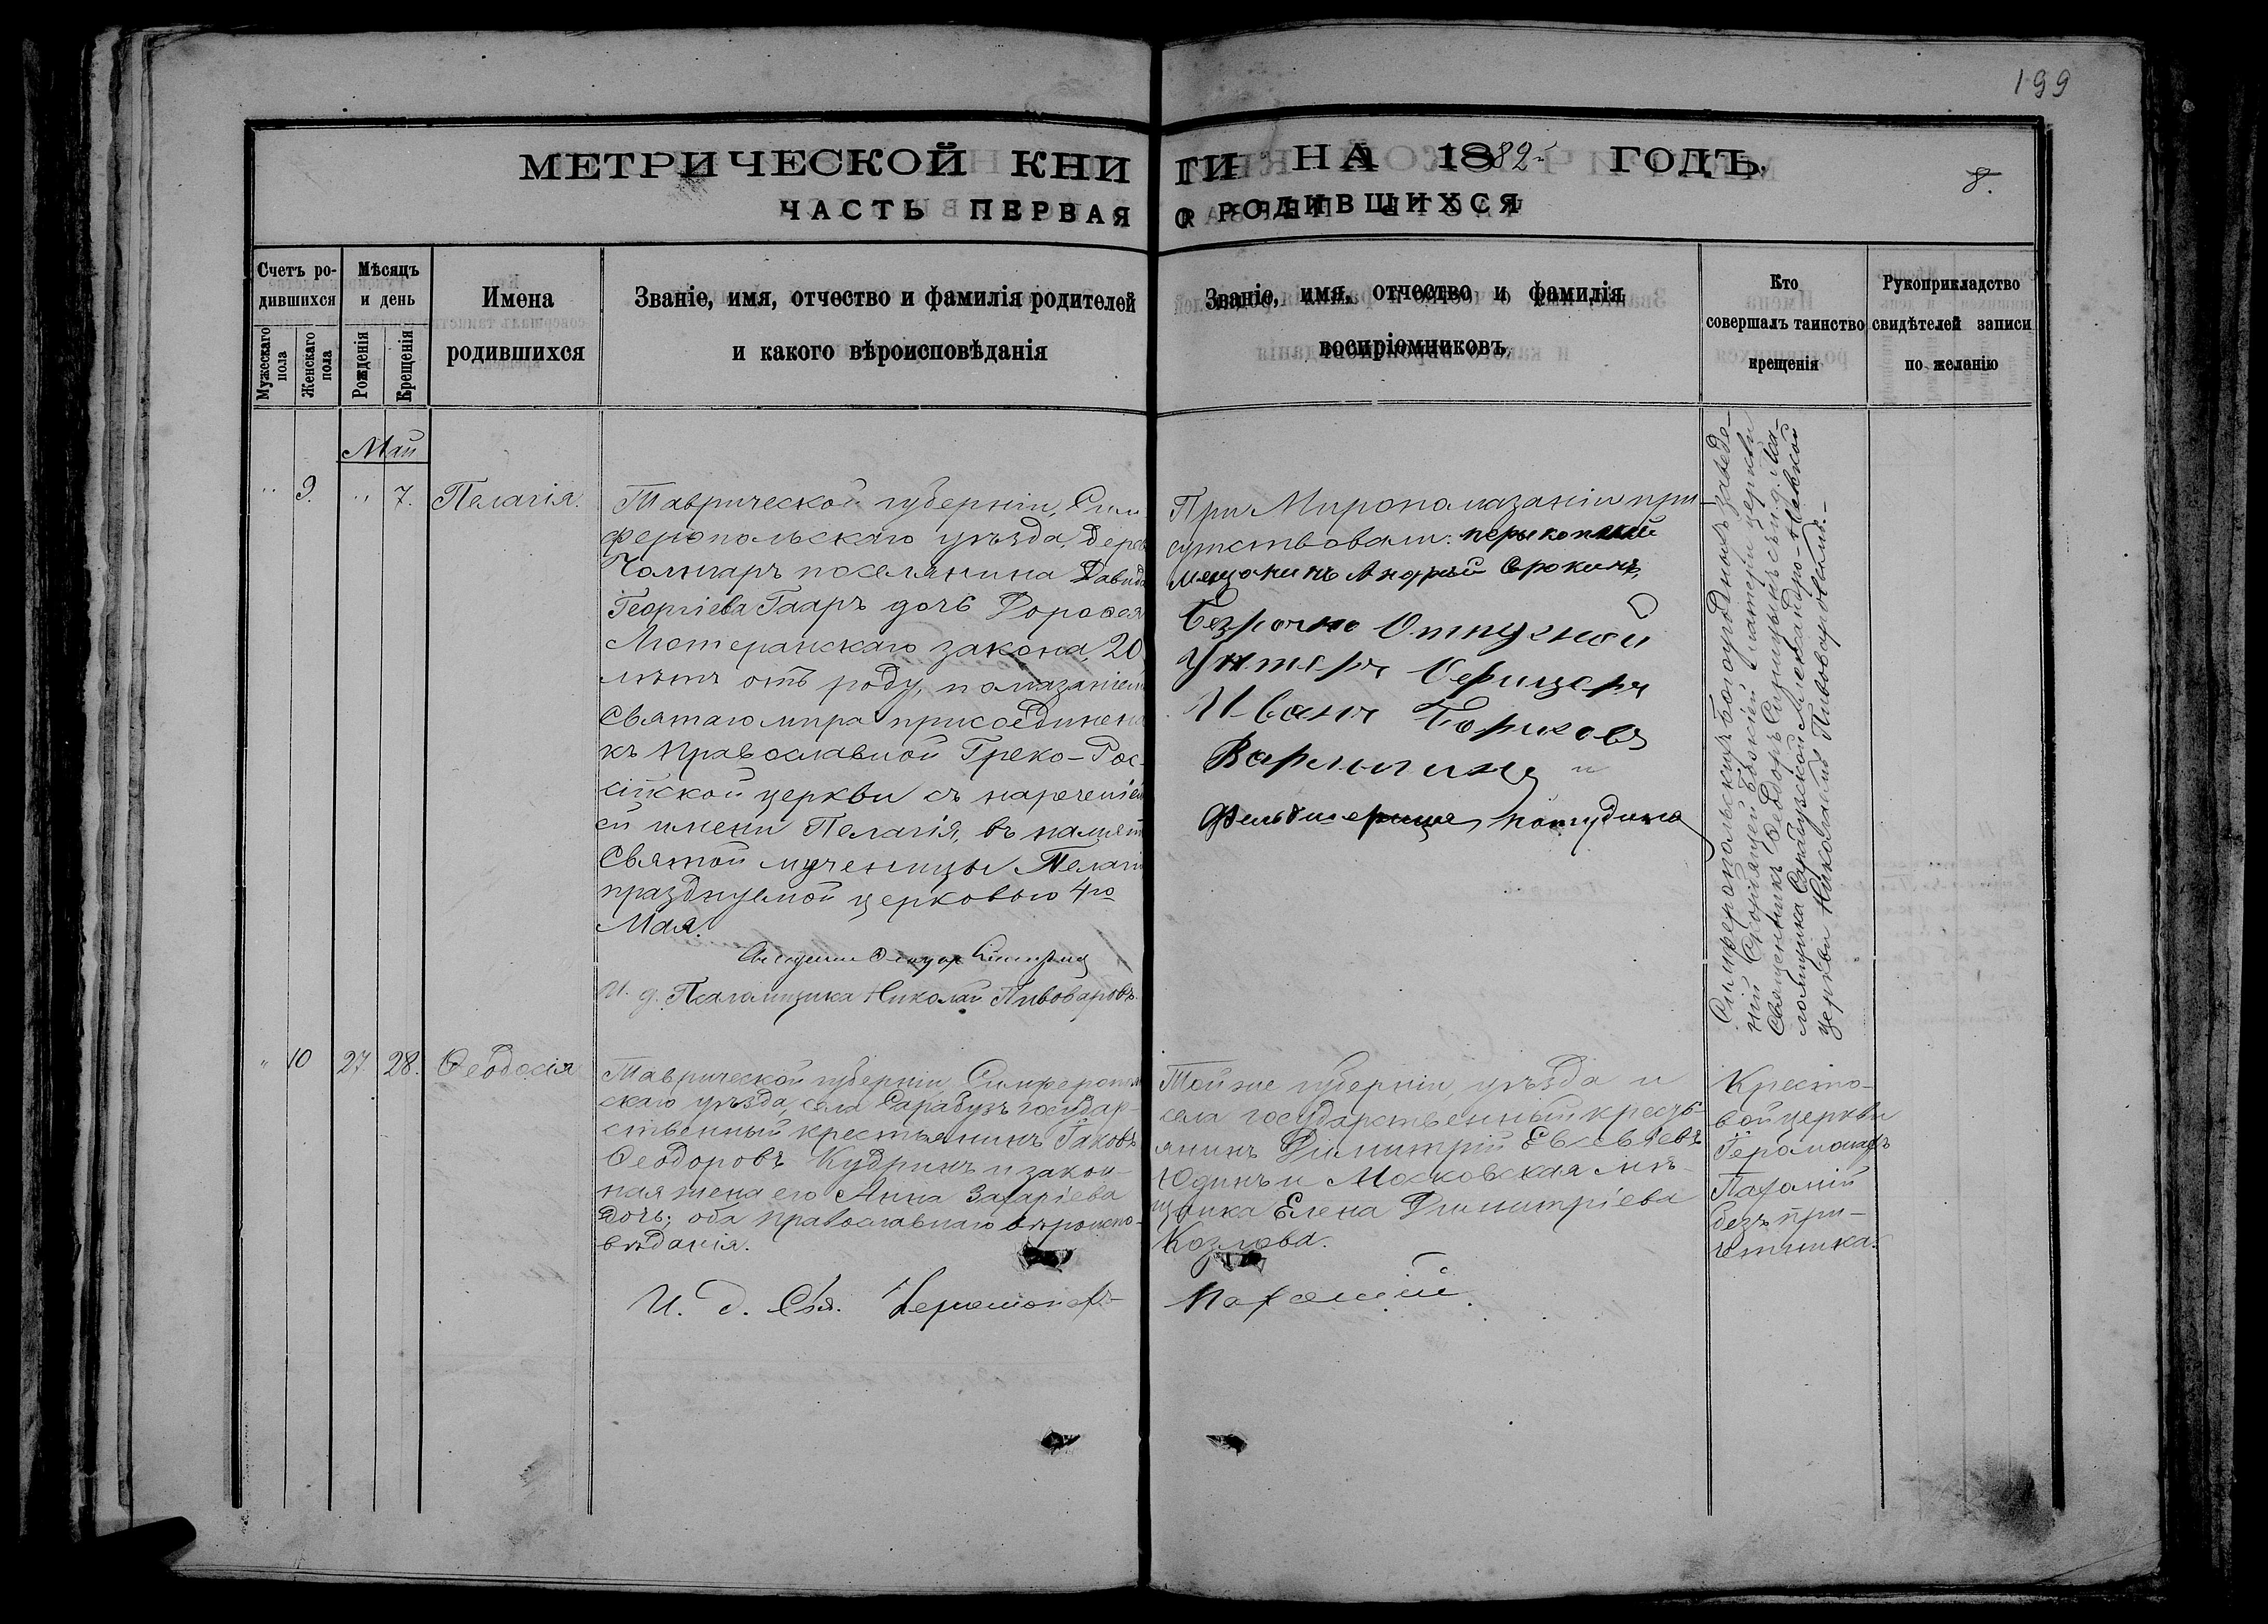 199
МЕТРИЧЕСКОЙ КНИГИ НА 1882й ГОДЪ.
8.
ЧАСТЬ ПЕРВАЯ О РОДИВШИХСЯ
Счетъ родившихся
Мужескаго пола
Женскаго пола
Мѣсяцъ и день
Рожденія
Крещенія
Имена родившихся
Званіе, имя, отчество и фамилія родителей
и какого вѣроисповѣданія
Званіе, имя, отчество и фамилія
воспріемниковъ.
Кто
совершалъ таинство
крещенія
Рукоприкладство
свидѣтелей записи
по желанію
Май
" 9. " 7. Пелагія.
Таврической губерніи, Сим
феропольскаго уѣзда, Дерев
Чонгаръ поселянина Давида
Георгіева Гааръ дочь Дороѳея
Лютеранскаго закона, 20
лѣтъ отъ роду, помазаніем
Святаго мира присоединена
къ Православной Греко-Рос-
сійской церкви съ наречені
ей имени Пелагія, въ памят
Святой мученицы Пелагіи
празднуемой церковью 4го
Мая.
Священник Ѳеодор
И. д. Псаломщика Николай Пивоваровъ.
При Миропомазаніи при-
сутствовали: перекопский
мещанинъ Андрей Сорокинъ,
Безрочно Отпускной
Унтеръ Офицеръ
Иванъ Борисовъ
Варлыгинъ и
Фельдшерица
Симферопольскихъ Богоугодныхъ заведе-
ній Скорбящей Божіей Матери церкви
Священникъ Ѳеодоръ съ и. д. Пса-
ломщика Сарабузской Александро-Невской
церкви Николаемъ Пивоваровымъ.-
" 10 27 28. Ѳеодосія
Таврической губерніи, Симферополь
скаго уѣзда, села Сарабузъ государ-
ственный крестьянинъ Іаковъ
Ѳеодоровъ Кудринъ и закон-
ная жена его Анна Захаріева
дочь; оба православнаго вѣроиспо-
вѣданія.
Той же губерніи, уѣзда и
села государственный кресть-
янинъ Димитрій Евсевіевъ
Юдинъ и Московская мѣ-
щанка Елена Димитріева
Козлова.
Кресто-
вой церкви
Іеромонахъ
Пахомій
безъ при-
четника.
И. д. Свя. Іеромонахъ Пахомій.